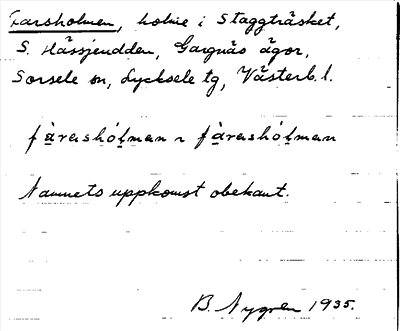 Farsholmen, holme i Staggträsket,
S. Hässjeudden, Gargnäs ägor,
Sorsele sn, Lycksele tg, Västerb. l.
fa̱rashó̱ḻman ~ fa̱rashó̱ḻman
Namnets uppkomst obekant.
B. Nygren 1935.